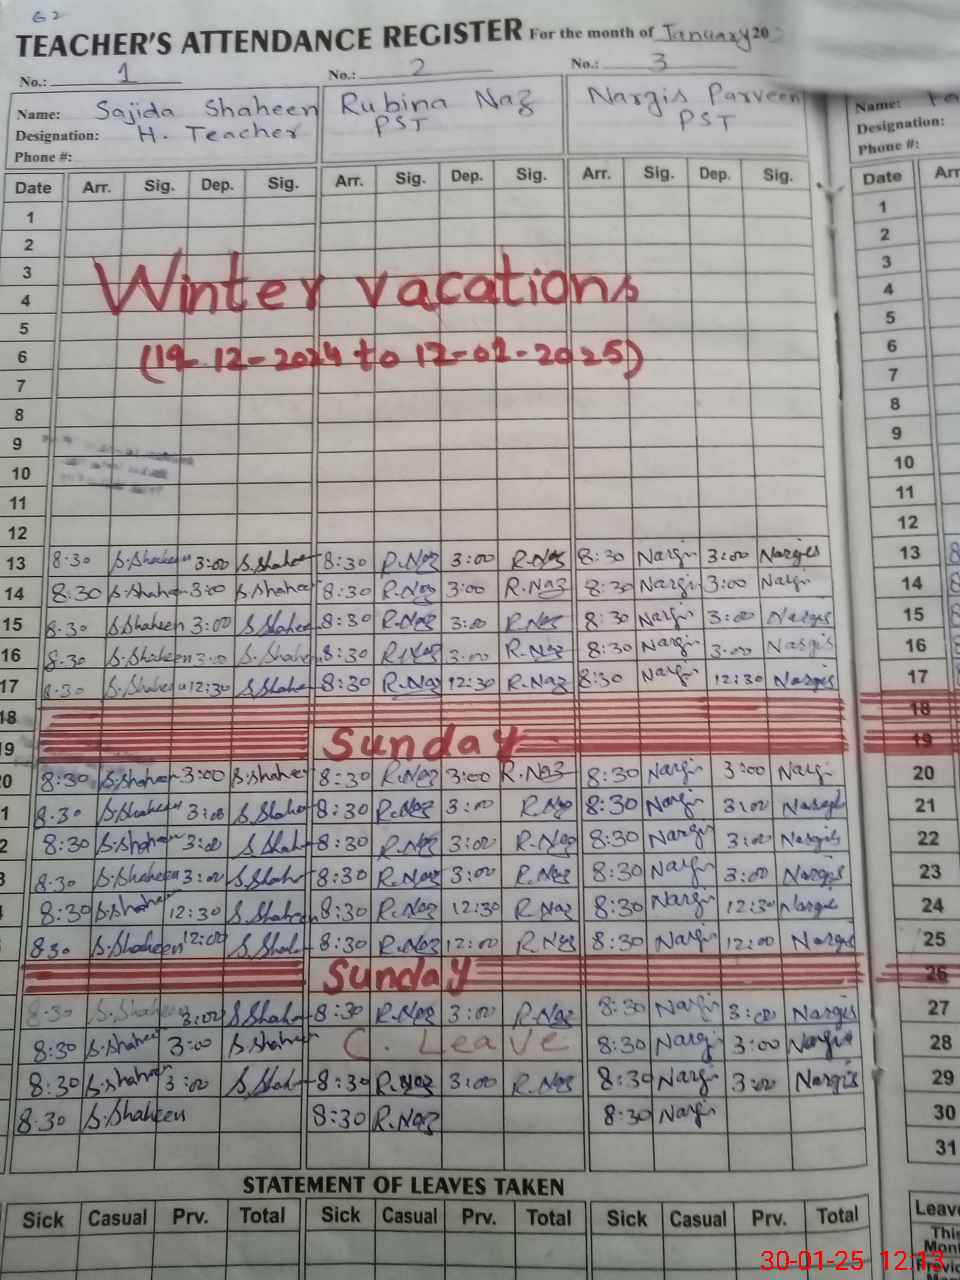 G2
TEACHER'S ATTENDANCE REGISTER For the month of January 20
No.: 1 No.: 2 No.: 3
Name: Sajida Shaheen Rubina Naz Nargis Parveen Name:
Designation: H. Teacher PST PST Designation:
Phone #: Phone #:
Date Arr. Sig. Dep. Sig. Arr. Sig. Dep. Sig. Arr. Sig. Dep. Sig. Date Arr
1 1
2 2
3 3
Winter vacations
4 4
5 5
6 (19-12-2024 to 12-01-2025) 6
7 7
8 8
9 9
10 10
11 11
12 12
13 8:30 S.Shaheen 3:00 S.Shahe 8:30 R.Naz 3:00 R.Naz 8:30 Nargis 3:00 Nargis 13 8
14 8:30 S.Shaheen 3:00 S.Shaheen 8:30 R.Naz 3:00 R.Naz 8:30 Nargis 3:00 Nargis 14
15 8:30 S.Shaheen 3:00 S.Shaheen 8:30 R.Naz 3:00 R.Naz 8:30 Nargis 3:00 Nargis 15
16 8:30 S.Shaheen 3:00 S.Shaheen 8:30 R.Naz 3:00 R.Naz 8:30 Nargis 3:00 Nargis 16
17 8:30 S.Shaheen 12:30 S.Shahe 8:30 R.Naz 12:30 R.Naz 8:30 Nargis 12:30 Nargis 17
18 18
19 Sunday 19
0 8:30 S.Shaheen 3:00 S.Shaheen 8:30 R.Naz 3:00 R.Naz 8:30 Nargis 3:00 Nargis 20
1 8:30 S.Shaheen 3:00 S.Shahe 8:30 R.Naz 3:00 R.Naz 8:30 Nargis 3:00 Nargis 21
2 8:30 S.Shaheen 3:00 S.Shah 8:30 R.Naz 3:00 R.Naz 8:30 Nargis 3:00 Nargis 22
3 8:30 S.Shaheen 3:00 S.Shah 8:30 R.Naz 3:00 R.Naz 8:30 Nargis 3:00 Nargis 23
8:30 S.Shaheen 12:30 S.Shaheen 8:30 R.Naz 12:30 R.Naz 8:30 Nargis 12:30 Nargis 24
8:30 S.Shaheen 12:00 S.Shah 8:30 R.Naz 12:00 R.Naz 8:30 Nargis 12:00 Nargis 25
Sunday 26
8:30 S.Shaheen 3:00 S.Shah 8:30 R.Naz 3:00 R.Naz 8:30 Nargis 3:00 Nargis 27
8:30 S.Shaheen 3:00 S.Shaheen C. Leave 8:30 Nargis 3:00 Nargis 28
8:30 S.Shaheen 3:00 S.Shah 8:30 R.Naz 3:00 R.Naz 8:30 Nargis 3:00 Nargis 29
8:30 S.Shaheen 8:30 R.Naz 8:30 Nargis 30
31
STATEMENT OF LEAVES TAKEN
Sick Casual Prv. Total Sick Casual Prv. Total Sick Casual Prv. Total Leave
This
Mon
30-01-25 12:13
Previo